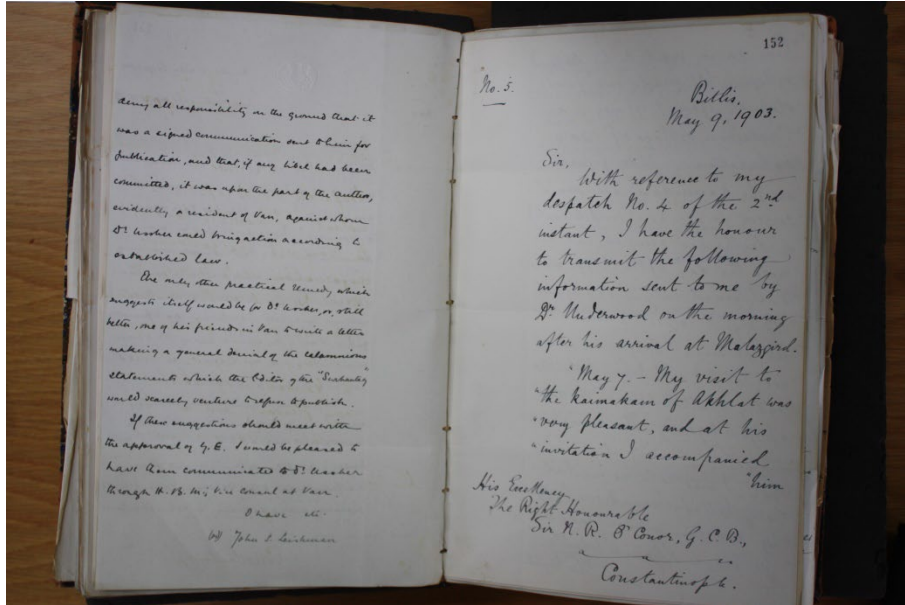 deny all responsibility on the ground that it
was a signed communication sent to him for
publication, and that, if any libel had been
committed, it was upon the part of the author,
evidently a resident of Van, against whom
Dr. Ussher could bring action according to
established law.
The only other practical remedy which
suggests itself would be for Dr. Ussher, or, still
better, one of his friends in Van to write a letter
making a general denial of the calumnious
statements which the Editor of the
would scarcely venture to refuse to publish.
If these suggestions should meet with
the approval of Y. E. I would be pleased to
have them communicated to Dr. Ussher
through H. B. M's Vice Consul at Van.
I have etc.
John G. Leishman
152
No. 5.
Bitlis,
May 9, 1903.
Sir,
With reference to my
despatch No. 4 of the 2nd
instant, I have the honour
to transmit the following
information sent to me by
Dr. Underwood on the morning
after his arrival at Melazgird.
"May 7. - My visit to
"the Kaimakam of Akhlat was
"very pleasant, and at his
"invitation I accompanied
"him
His Excellency
The Right Honourable
Sir N. R. O'Conor, G.C.B.,
Constantinople.